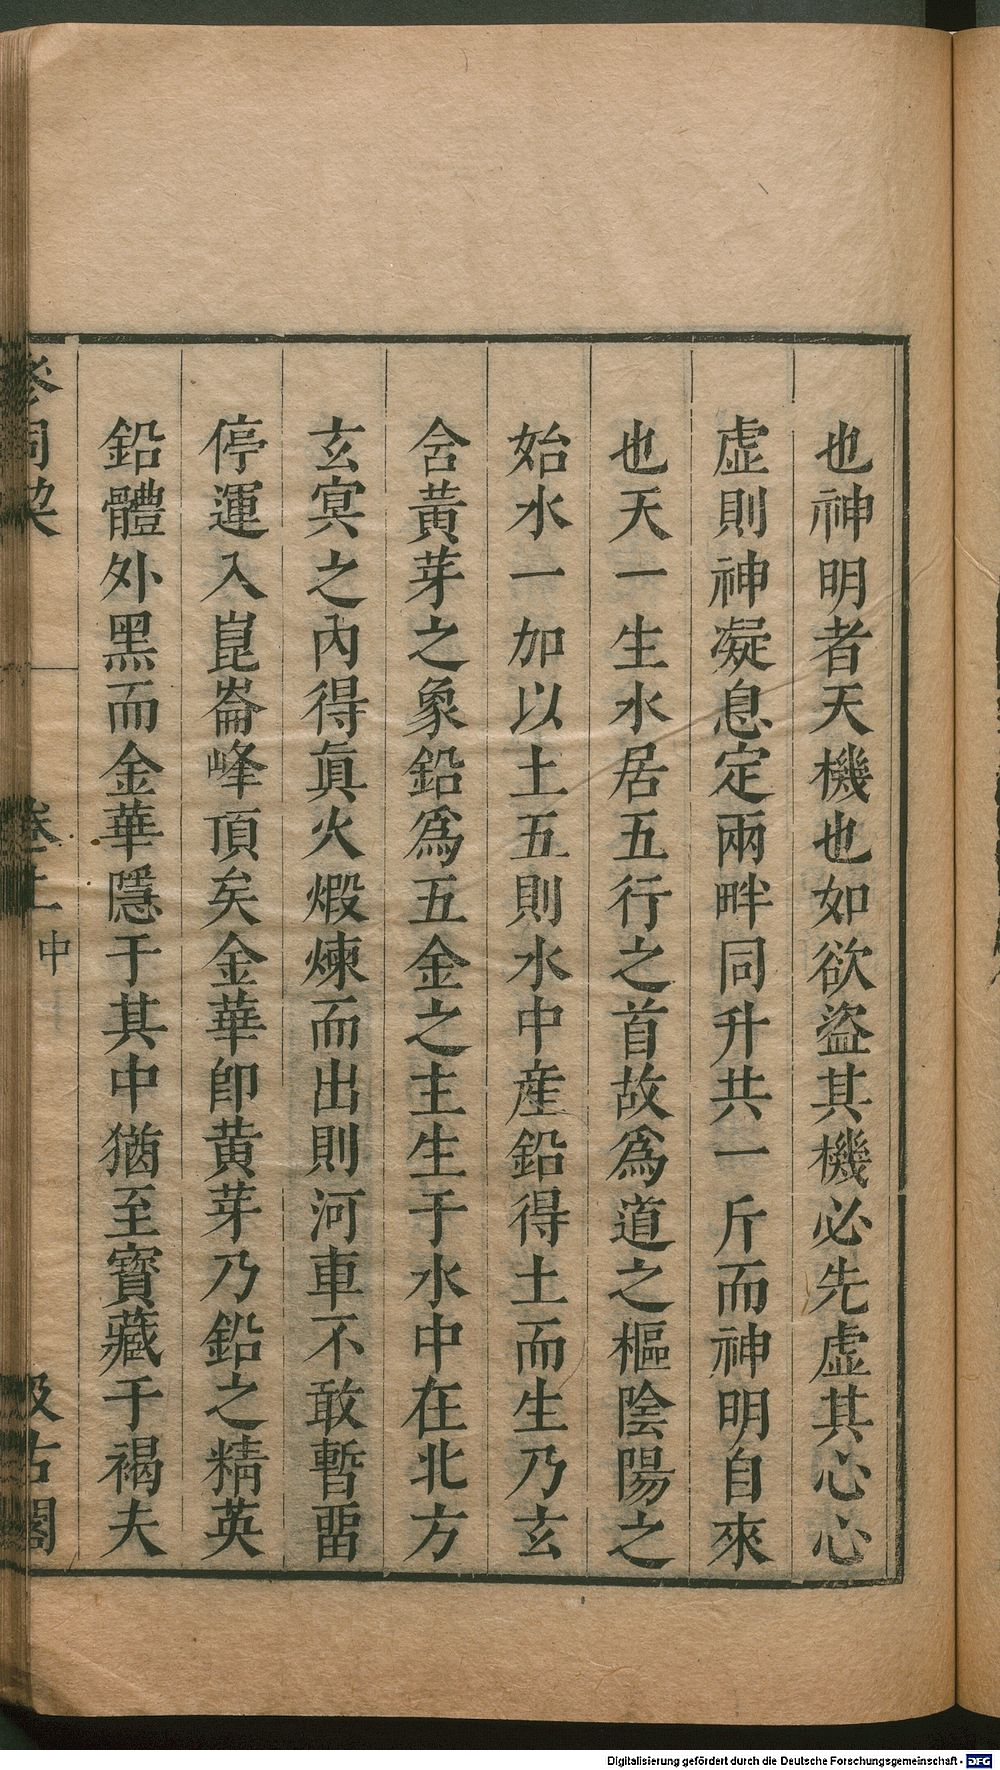 也神明者天機也如欲盜其機必先虛其心心
虛則神凝息定兩畔同升共一斤而神明自來
也天一生水居五行之首故爲道之樞陰陽之
始水一加以土五則水中産鉛得土而生乃玄
含黃芽之象鉛爲五金之主生于水中在北方
玄冥之內得眞火煅煉而出則河車不敢暫畱
停運入崑崙峰頂矣金華卽黃芽乃鉛之精英
鉛體外黑而金華隱于其中猶至寶藏于褐夫
參同契
卷上
中
汲古閣
Digitalisierung gefördert durch die Deutsche Forschungsgemeinschaft - DFG